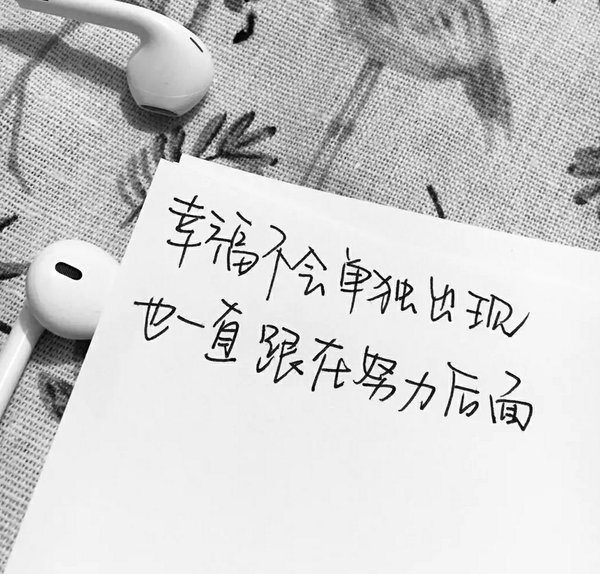 幸福不会单独出现
也一直跟在努力后面